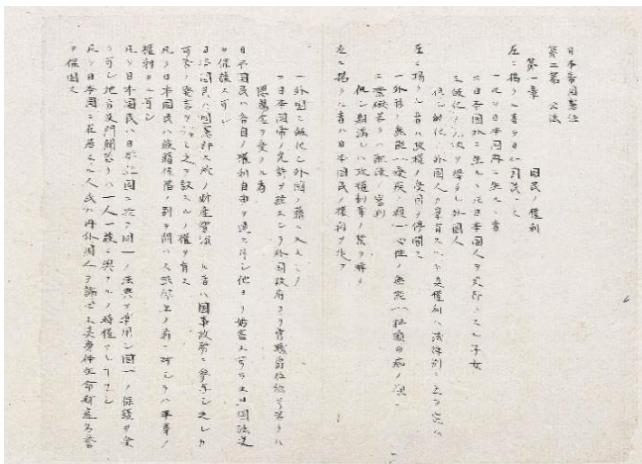 日本帝国憲法
第二篇 公法
第一章 国民ノ権利
左ニ掲クル者ヲ日本国民トス
一凡ソ日本国内ニ生ルヽ者
二日本国外ニ生ルヽトモ日本国人ヲ父母トスル子女
三帰化ノ免状ヲ得タル外国人
但シ帰化ノ外国人カ享有スヘキ其権利ハ法律別ニ之ヲ定ム
左ニ掲クル者ハ政権ノ受用ヲ停閣ス
一外形ノ無能(廃疾ノ類)心性ノ無能(狂癲白痴ノ類)
二禁獄若クハ配流ノ審判
但シ期満レハ政権剥奪ノ禁ヲ解ク
左ニ掲クル者ハ日本国民ノ権利ヲ失フ
一外国ニ帰化シ外国ノ籍ニ入ルモノ
二日本国帝ノ允許ヲ経スシテ外国政府ヨリ官職爵位称号若クハ
恩賜金ヲ受クル者
日本国民ハ各自ノ権利自由ヲ達ス可シ他ヨリ妨害ス可ラス且国法之
ヲ保護ス可シ
日本国民ハ国憲許ス所ノ財産智識アル者ハ国事政務ニ参与シ之レカ
可否ノ発言ヲ為シ之ヲ議スルノ権ヲ有ス
凡ソ日本国民ハ族籍位階ノ別ヲ問ハス法律上ノ前ニ対シテハ平等ノ
権利タル可シ
凡ソ日本国民ハ日本全国ニ於テ同一ノ法典ヲ準用シ同一ノ保護ヲ受
ク可シ地方及門閥若クハ一人一族ニ与フルノ特権アルコトナシ
凡ソ日本国ニ在居スル人民ハ内外国人ヲ論セス其身体生命財産名誉
ヲ保固ス